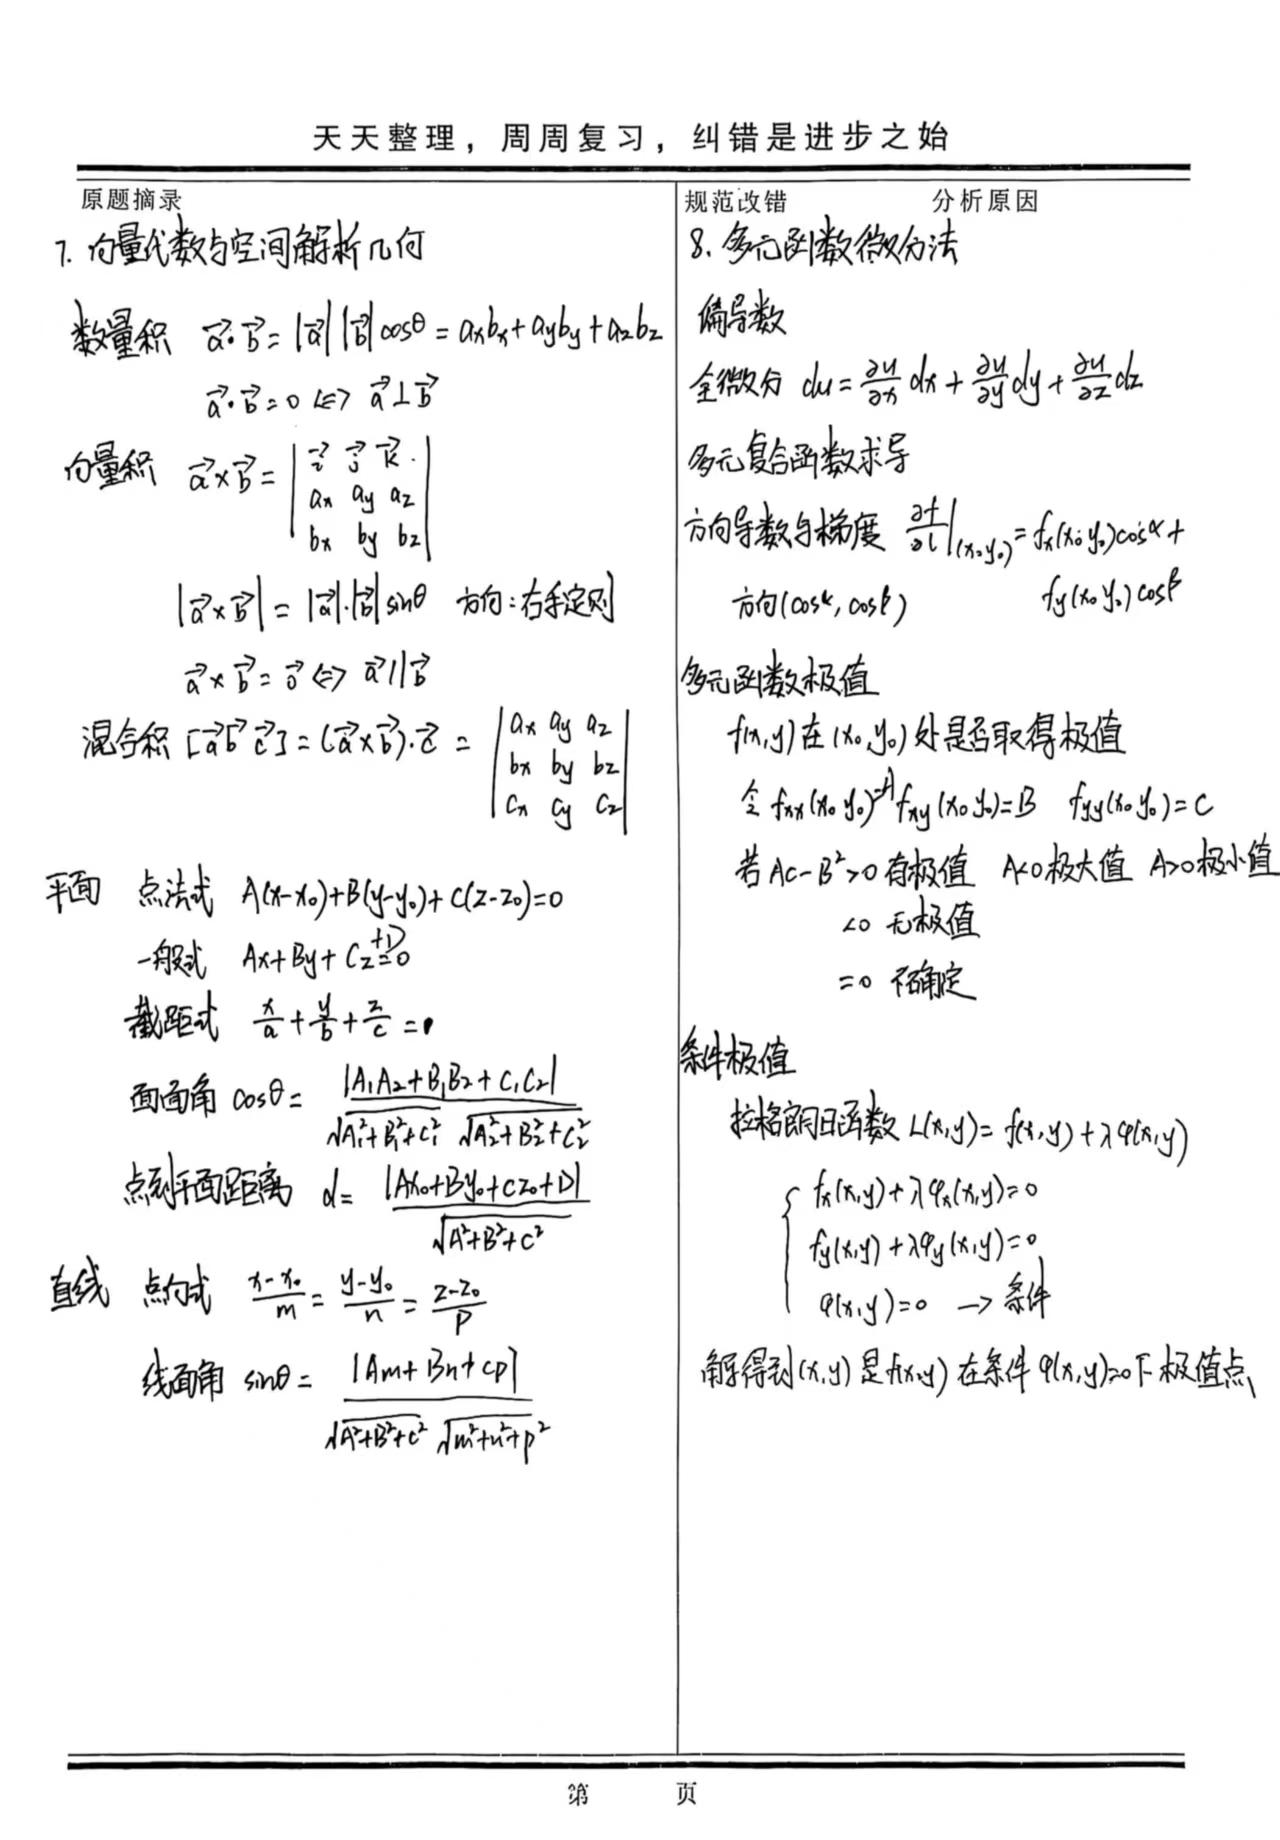 天天整理，周周复习，纠错是进步之始
原题摘录
7. 向量代数与空间解析几何
数量积 a⃗·b⃗=|a⃗||b⃗|cosθ=axbx+ayby+azbz
a⃗·b⃗=0⇔a⃗⊥b⃗
向量积 a⃗×b⃗=| i⃗ j⃗ k⃗
ax ay az
bx by bz |
|a⃗×b⃗|=|a⃗|·|b⃗|sinθ 方向:右手定则
a⃗×b⃗=0⃗⇔a⃗∥b⃗
混合积 [a⃗b⃗c⃗]=(a⃗×b⃗)·c⃗=| ax ay az
bx by bz
cx cy cz |
平面 点法式 A(x-x₀)+B(y-y₀)+C(z-z₀)=0
一般式 Ax+By+Cz+D=0
截距式 x/a+y/b+z/c=
面面角 cosθ=|A₁A₂+B₁B₂+C₁C₂|/√A₁²+B₁²+C₁² √A₂²+B₂²+C₂²
点到平面距离 d=|Ax₀+By₀+Cz₀+D|/√A²+B²+C²
直线 点向式 x-x₀/m=y-y₀/n=z-z₀/p
线面角 sinθ=|Am+Bn+Cp|/√A²+B²+C² √m²+n²+p²
规范改错 分析原因
8. 多元函数微分法
偏导数
全微分 du=∂u/∂x dx+∂u/∂y dy+∂u/∂z dz
多元复合函数求导
方向导数与梯度 ∂f/∂l|(x₀,y₀)=fx(x₀,y₀)cosα+
方向(cosα,cosβ) fy(x₀,y₀)cosβ
多元函数极值
f(x,y)在(x₀,y₀)处是否取得极值
令fxx(x₀,y₀)=A fxy(x₀,y₀)=B fyy(x₀,y₀)=C
若AC-B²>0有极值 A<0极大值 A>0极小值
<0 无极值
=0 不确定
条件极值
拉格朗日函数 L(x,y)=f(x,y)+λφ(x,y)
{ fx(x,y)+λφx(x,y)=0
fy(x,y)+λφy(x,y)=0
φ(x,y)=0 → 条件
解得到(x,y)是f(x,y)在条件φ(x,y)=0下极值点
第 页